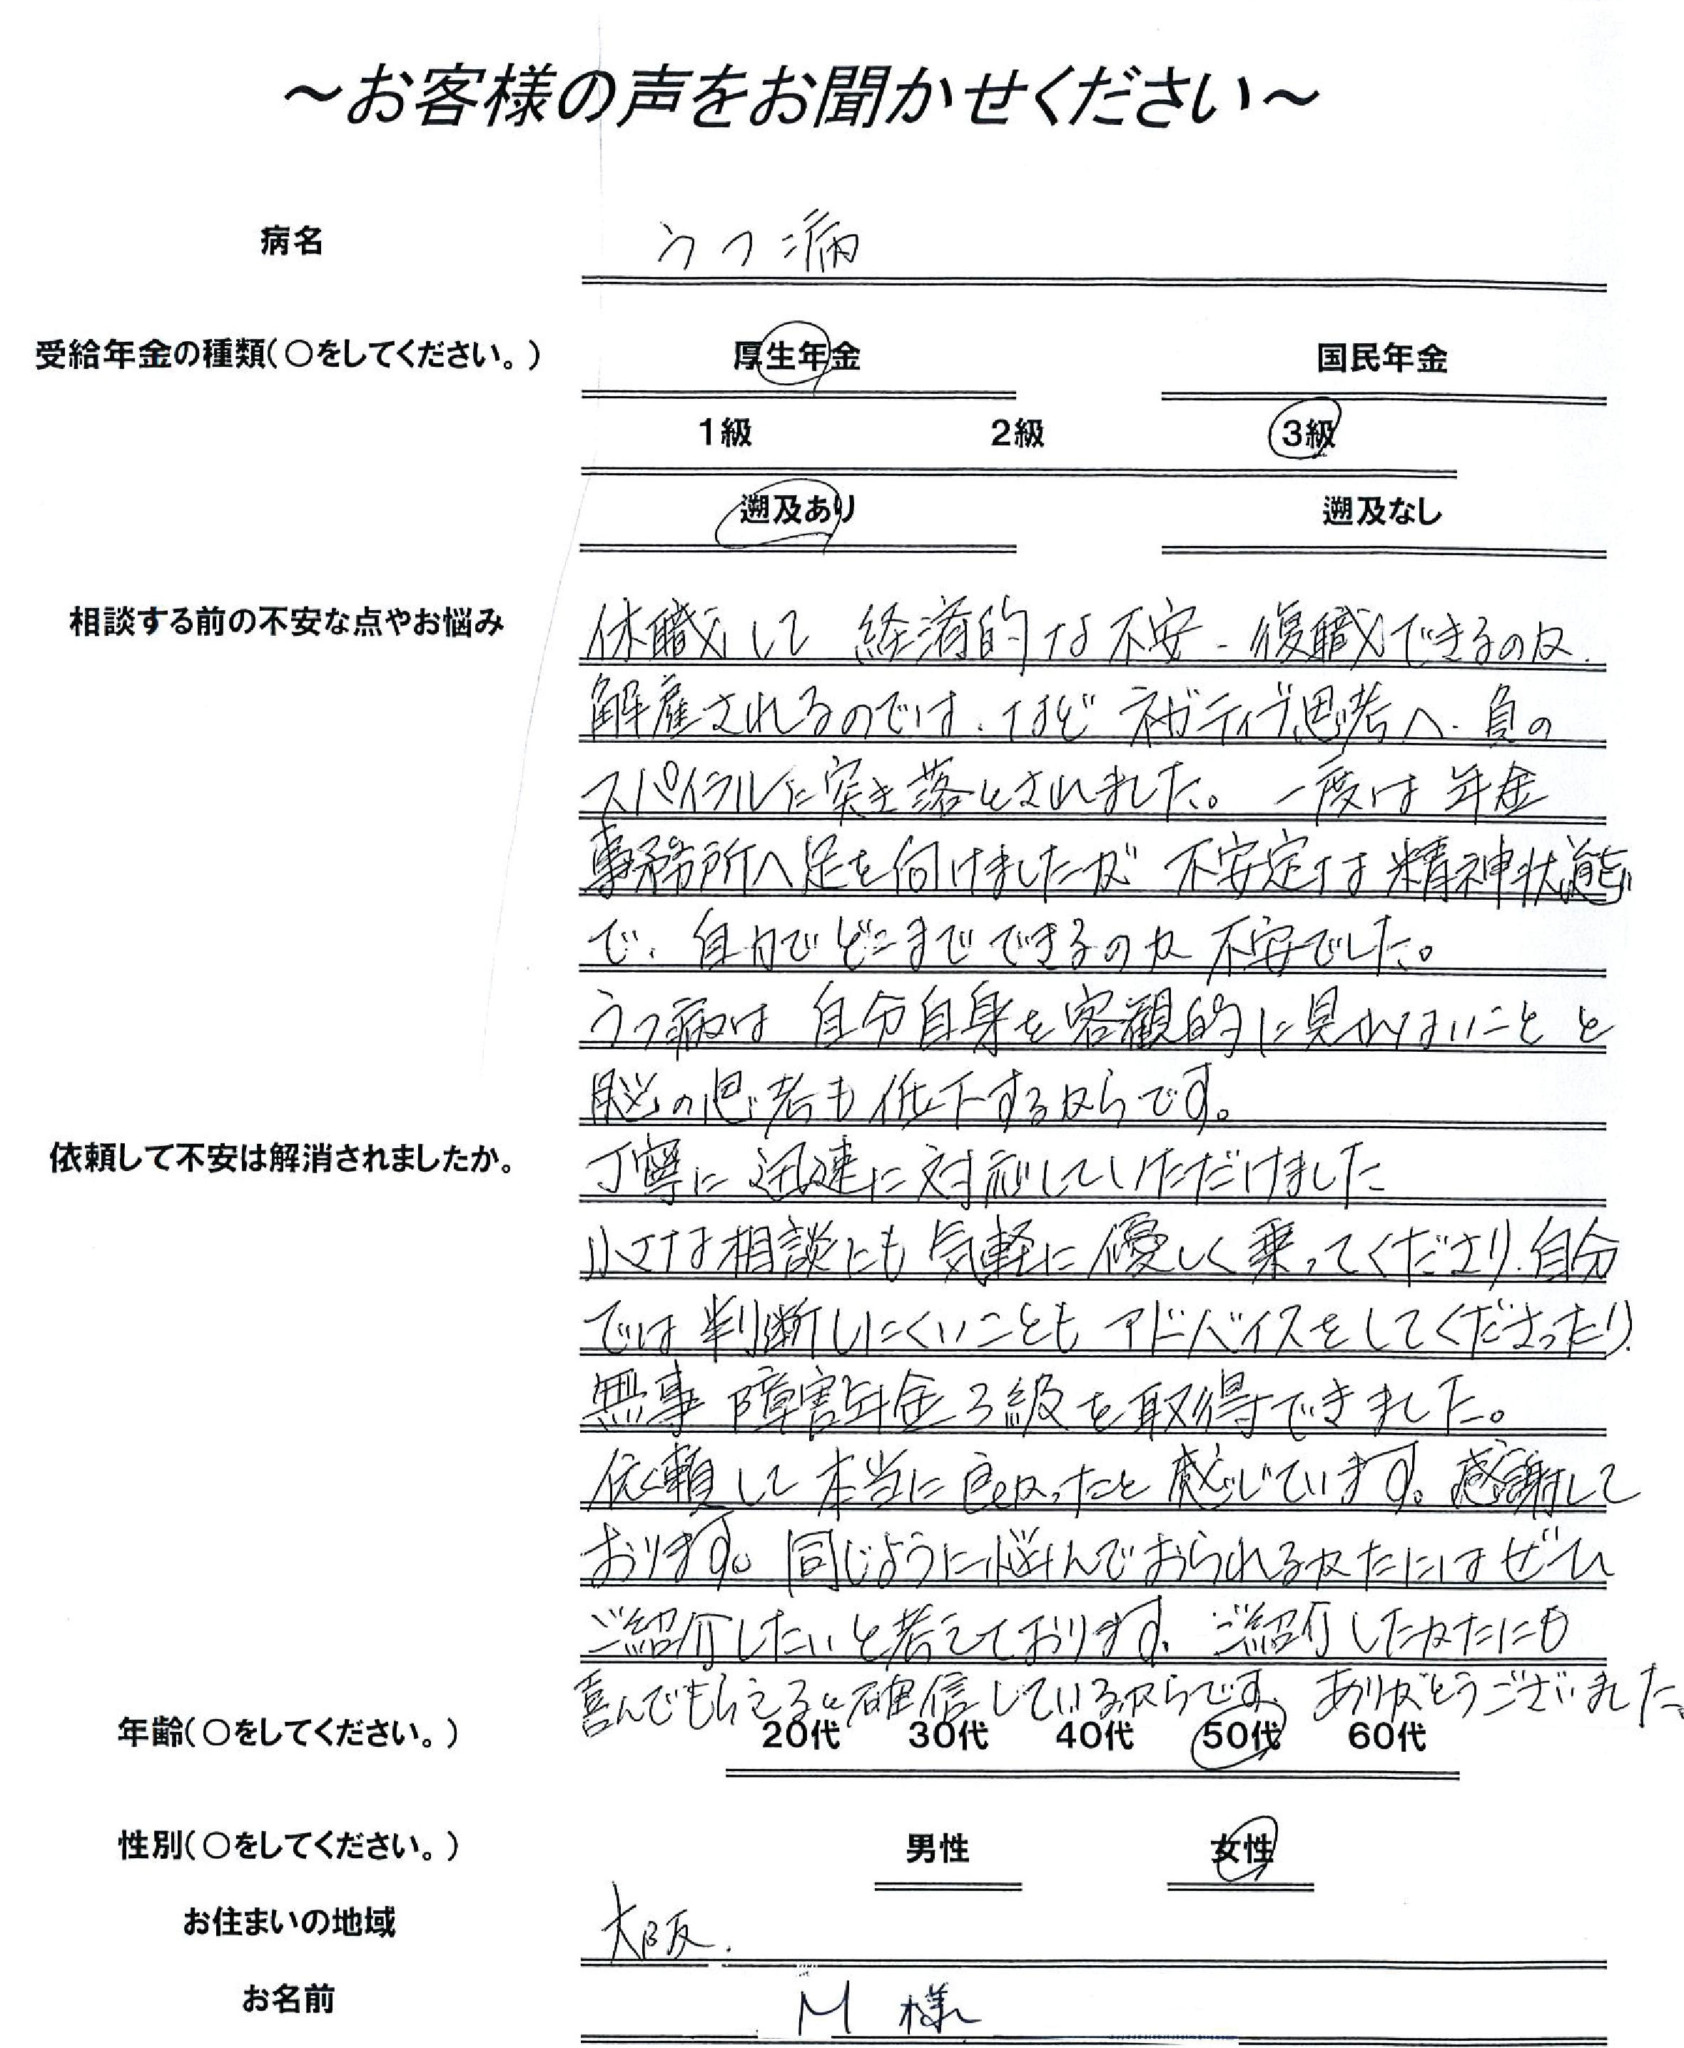 ～お客様の声をお聞かせください～
病名 うつ病
受給年金の種類(○をしてください。) 厚生年金 国民年金
1級 2級 3級
遡及あり 遡及なし
相談する前の不安な点やお悩み 休職して 経済的な不安、復職できるのか、
解雇されるのでは、などネガティブ思考へ。負の
スパイラルに突き落とされました。一度は 年金
事務所へ足を向けましたが 不安定な精神状態
で、自力でどこまでできるのか 不安でした。
うつ病は 自分自身を客観的に見れないこと と
脳の思考も低下するからです。
依頼して不安は解消されましたか。 丁寧に 迅速に対応していただけました
小さな相談にも 気軽に優しく乗ってくださり、自分
では判断しにくいことも アドバイスをしてくださったり、
無事 障害年金3級を取得できました。
依頼して 本当に良かったと感じています。感謝して
おります。同じように悩んでおられるかたにはぜひ
ご紹介したいと考えております。ご紹介したかたにも
喜んでもらえると確信しているからです。ありがとうございました。
年齢(○をしてください。) 20代 30代 40代 50代 60代
性別(○をしてください。) 男性 女性
お住まいの地域 大阪.
お名前 M 様